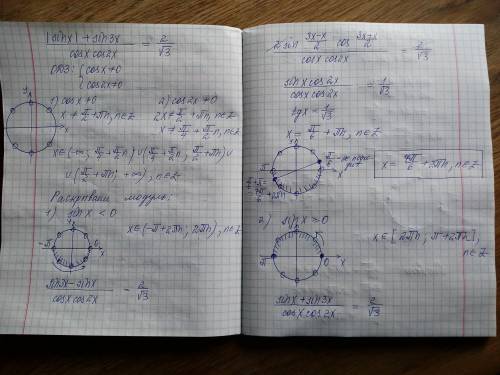 |sinx| + sin3x / cosx cos2x = 2/√3
ОДЗ: { cosx ≠ 0
cos2x ≠ 0
1) cosx ≠ 0
x ≠ π/2 + πn, n∈Z
2) cos2x ≠ 0
2x ≠ π/2 + πn, n∈Z
x ≠ π/4 + π/2 n, n∈Z
∪ (π/2 + πn; +∞), n∈Z
Раскрываем модуль:
1) sinx < 0
x∈(-π+2πn; 2πn), n∈Z
sin3x - sinx / cosx cos2x = 2/√3
2 sin 3x-x/2 cos 3x+x/2 / cosx cos2x = 2/√3
sinx cos2x / cosx cos2x = 1/√3
tgx = 1/√3
x = π/6 + πn, n∈Z
2) sinx ≥ 0
x∈[2πn; π+2πn], n∈Z
sinx + sin3x / cosx cos2x = 2/√3